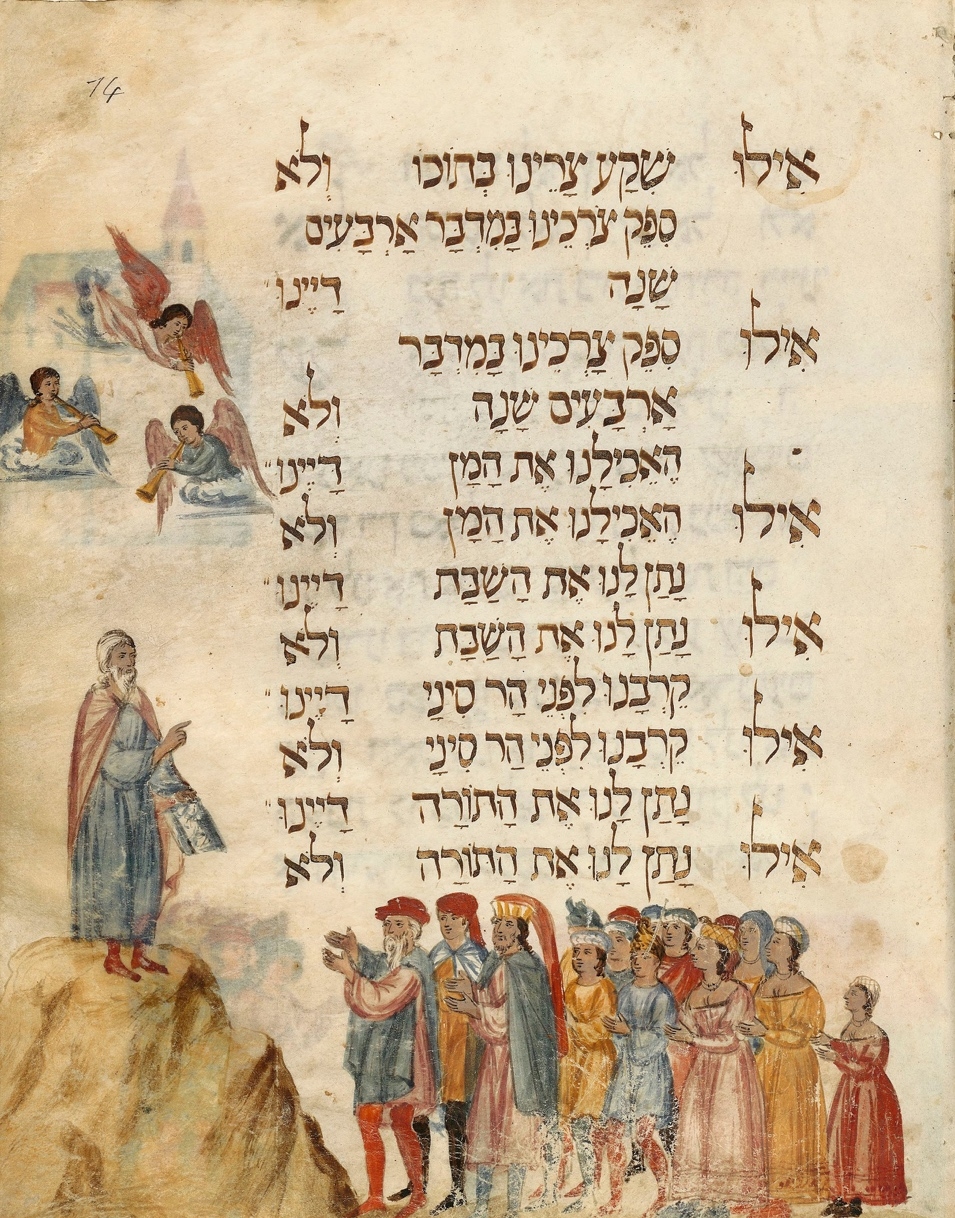 14
אִילוּ שִׁקַע צָרֵינוּ בְּתוֹכוֹ וְלֹא
סִפֵּק צָרְכֵינוּ בַּמִדְבָּר אַרְבָּעִים
שָׁנָה דַיֵינוּ
אִילוּ סִפֵּק צָרְכֵינוּ בַּמִדְבָּר
אַרְבָּעִים שָׁנָה וְלֹא
הֶאֱכִילָנוּ אֶת הַמָן דַיֵינוּ
אִילוּ הֶאֱכִילָנוּ אֶת הַמָן וְלֹא
נָתַן לָנוּ אֶת הַשַׁבָּת דַיֵינוּ
אִילוּ נָתַן לָנוּ אֶת הַשַׁבָּת וְלֹא
קֵרְבָנוּ לִפְנֵי הַר סִינַי דַיֵינוּ
אִילוּ קֵרְבָנוּ לִפְנֵי הַר סִינַי וְלֹא
נָתַן לָנוּ אֶת הַתּוֹרָה דַיֵינוּ
אִילוּ נָתַן לָנוּ אֶת הַתּוֹרָה וְלֹא